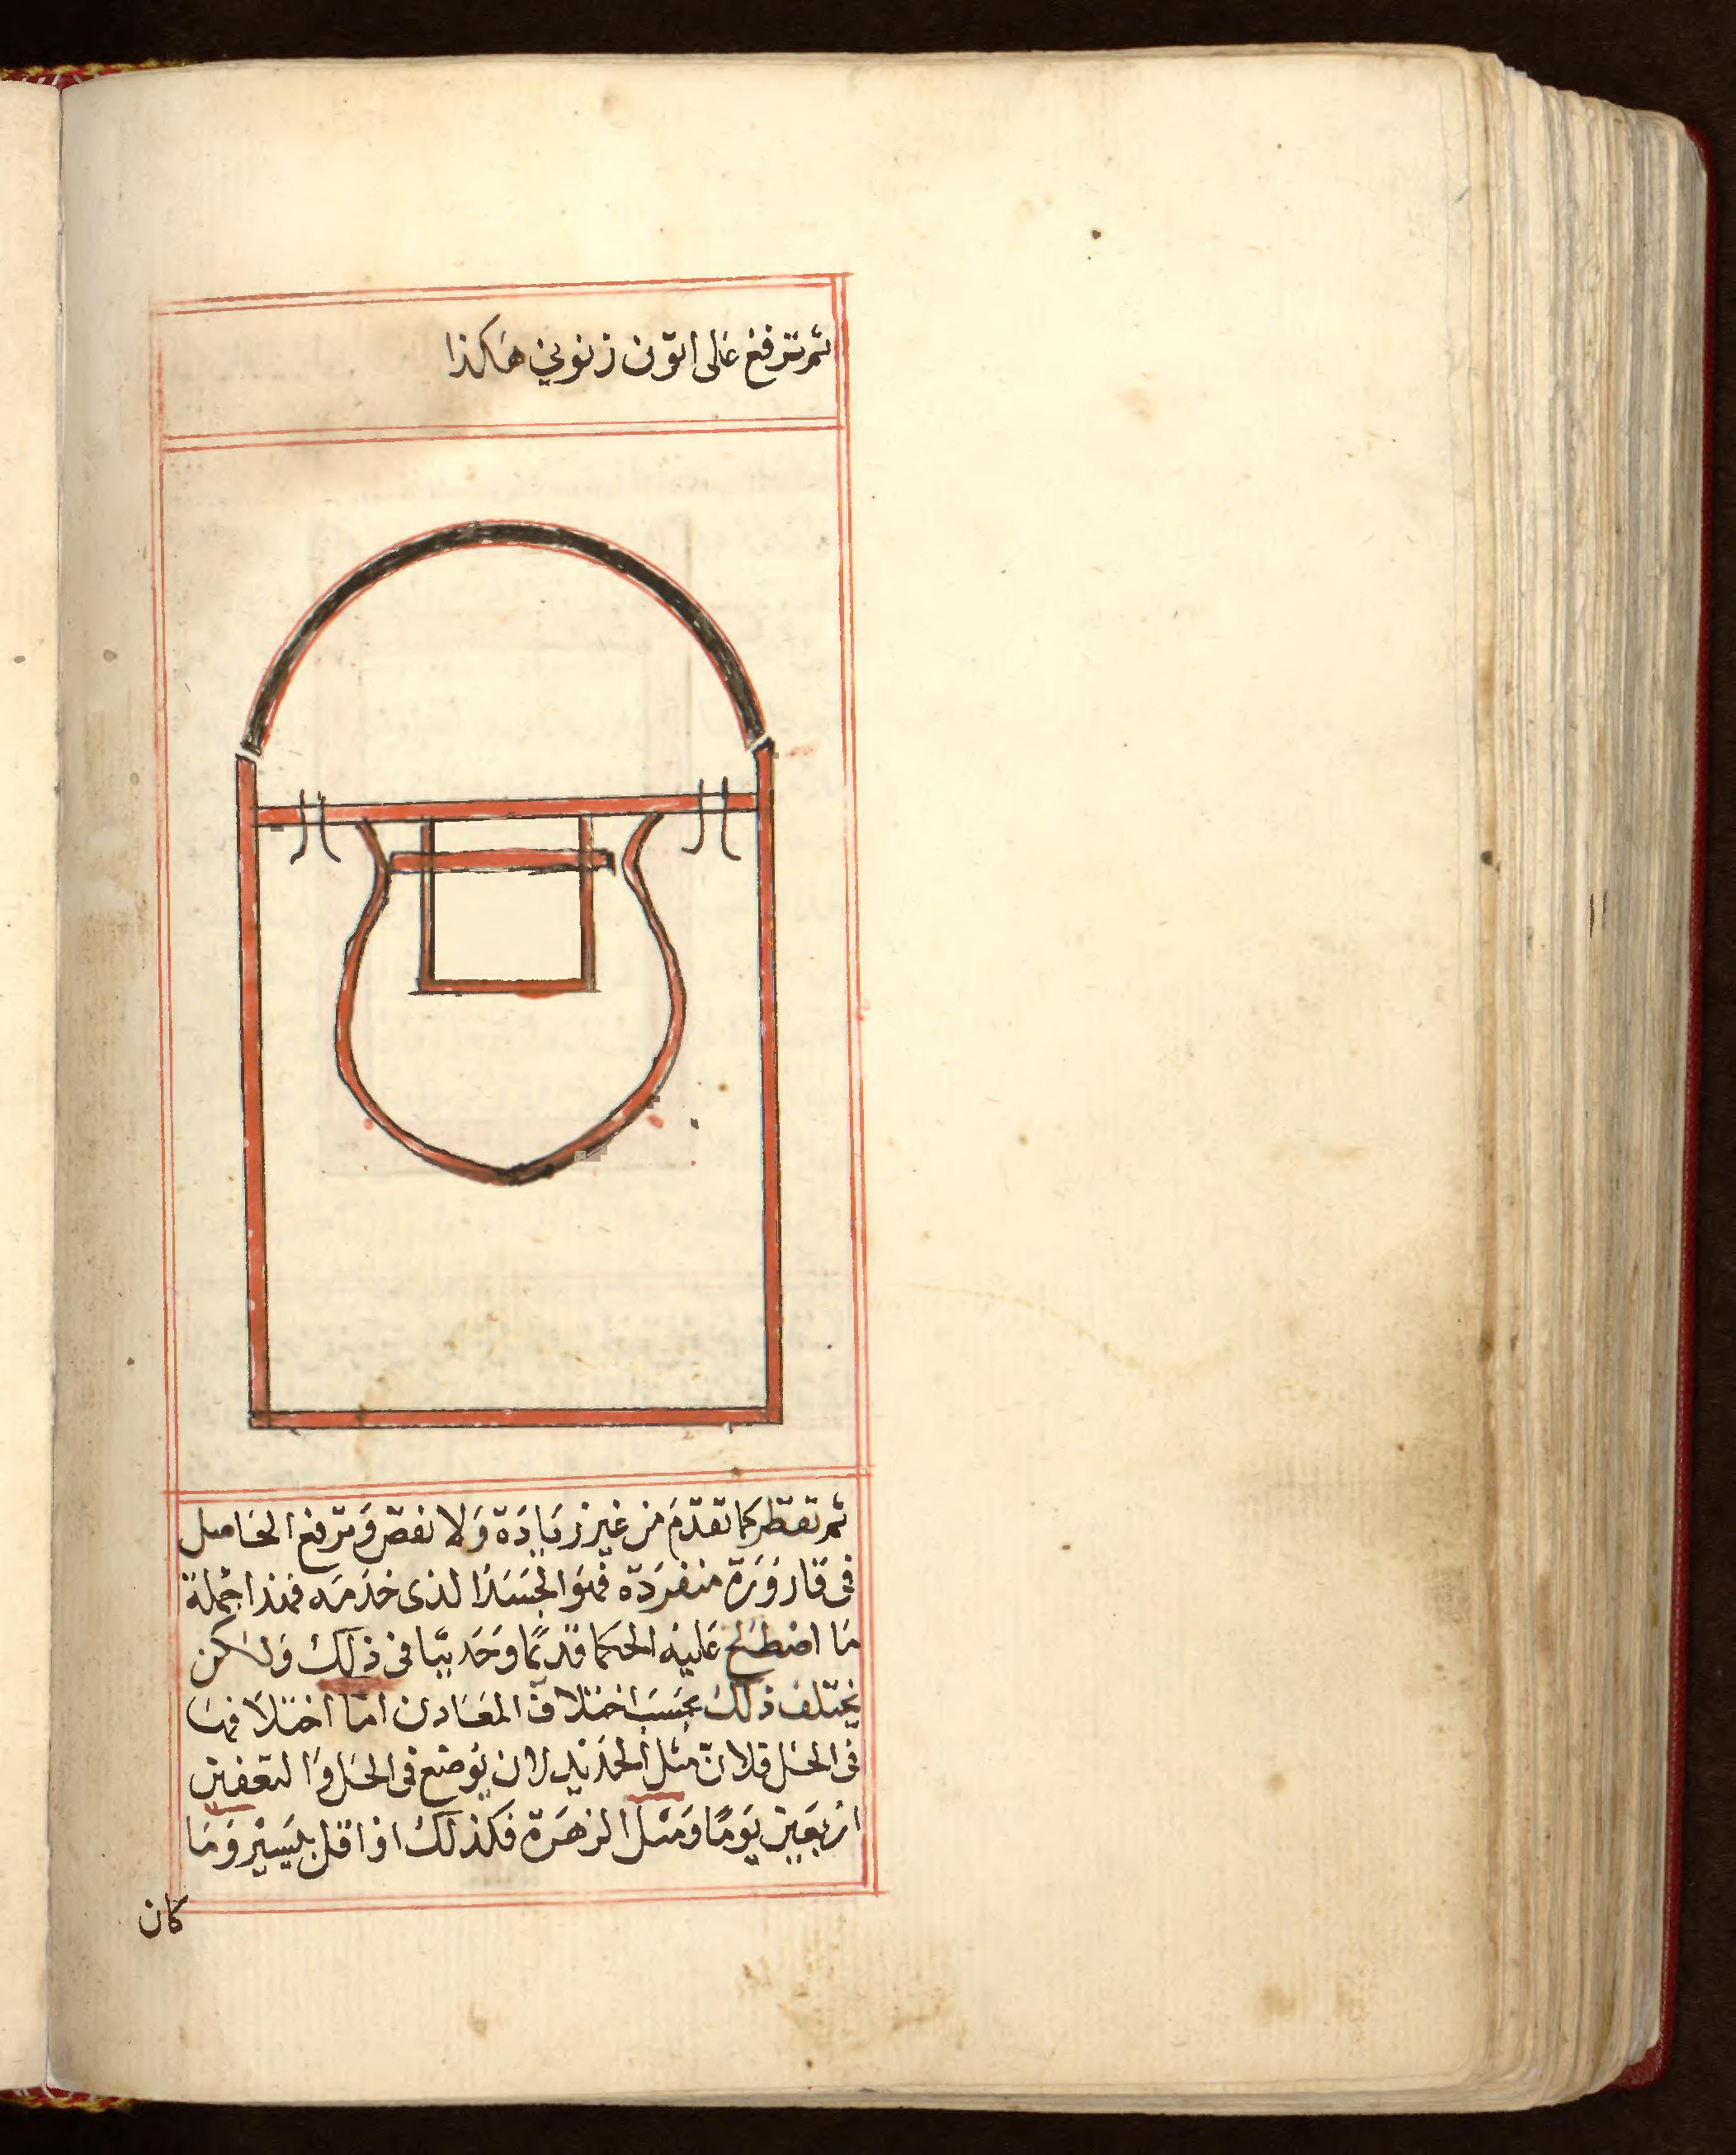 ثم ترفع على اتون زنوبي هاكذا
ثم تقطر كما تقدم من غير زيادة ولا نقص وترفع الحاصل
فى قارورة منفردة فهو الجسد الذى خدمه فهذا جملة
ما اصطلح عليه الحكما قديمًا وحديثا فى ذلك ولكن
يختلف ذلك بحسب اختلاف المعادن اما اختلافها
فى الحل فلان مثل الحديد لان يوضع فى الحل والتعفين
اربعين يومًا ومثل الزهرة فكذلك او اقل بيسير وما
كان